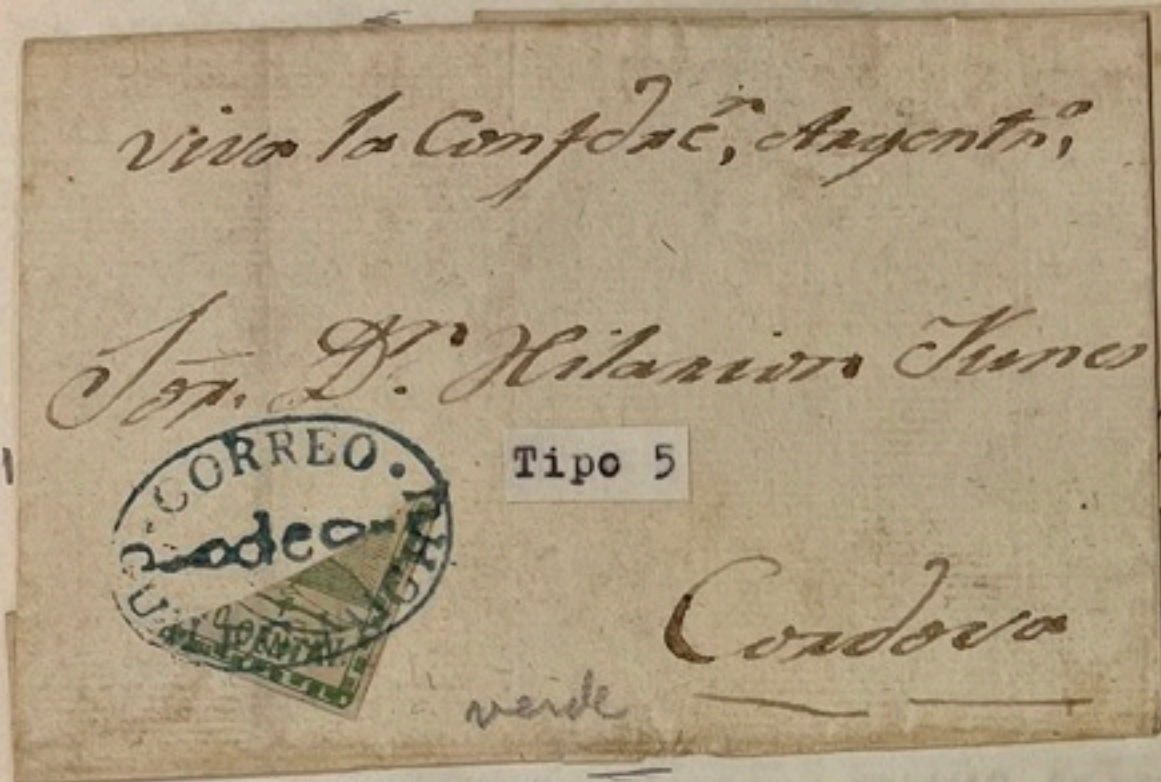 viva la Confdac.n Argentn.a
Sōr. D.n Hilarion Funes
CORREO
odeo
Tipo 5
CENTAV.
Cordova
verde